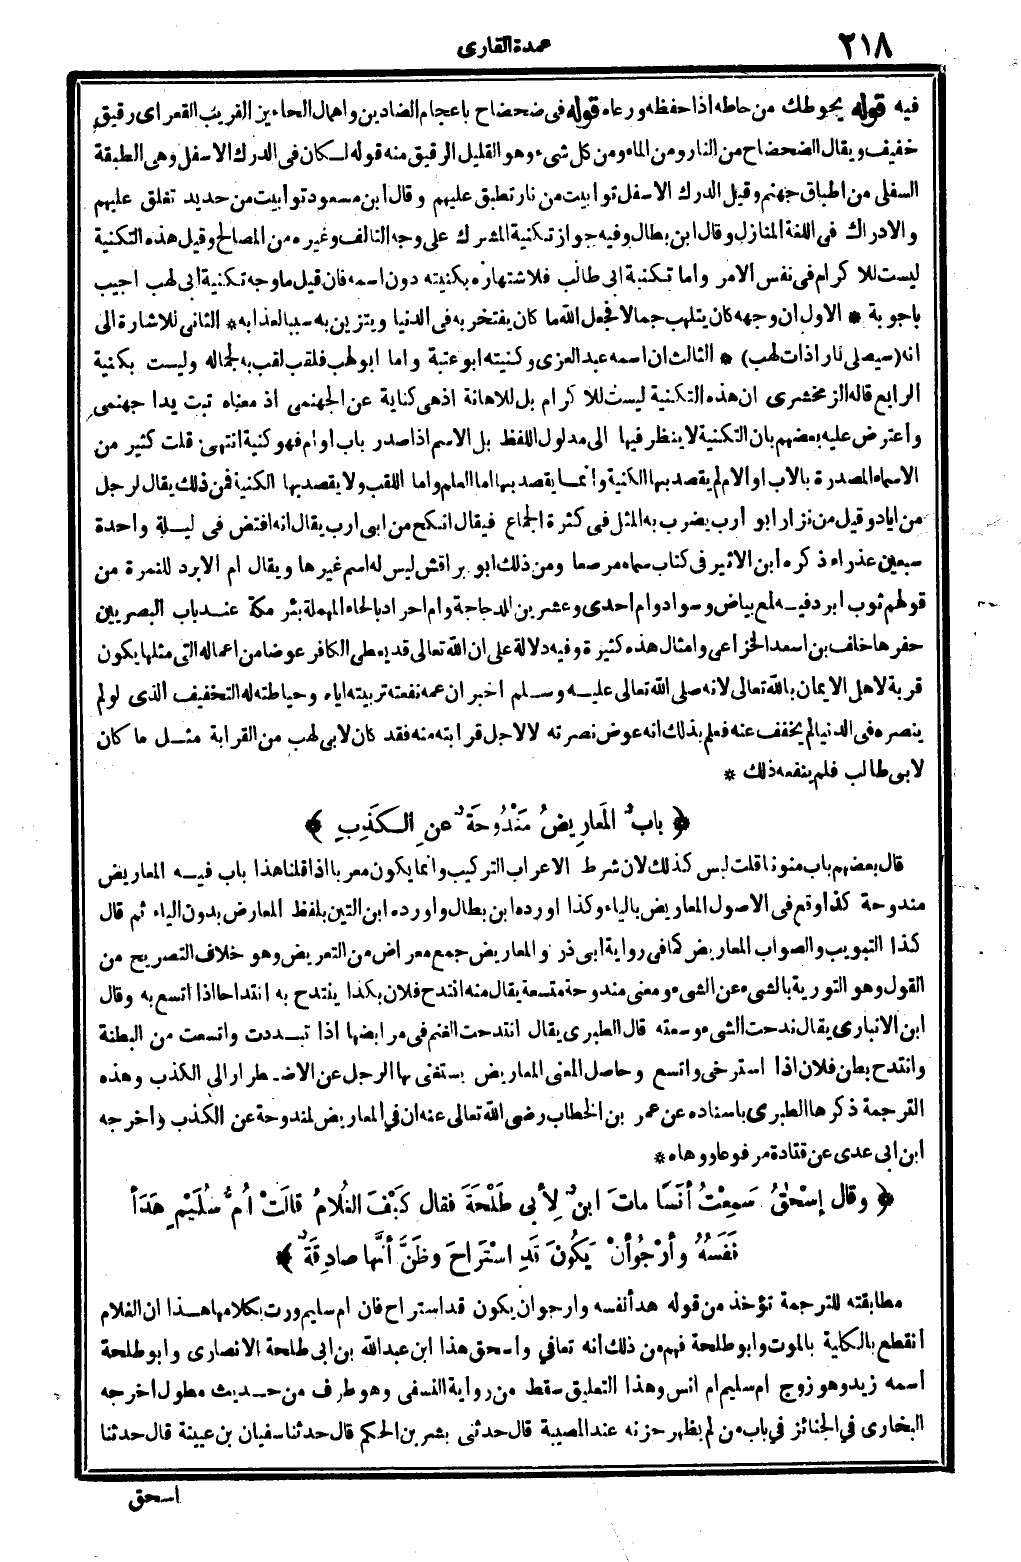 ٢١٨
عمدة القارى
فيه قوله يحوطك من حاطه اذا حفظه ورعاه قوله فى ضحضاح باعجام الضادين واهمال الحاءين القريب القعر اى رقيق
خفيف ويقال الضحضاح من النار ومن الماء ومن كل شىء وهو القليل الرقيق منه قوله لكان فى الدرك الاسفل وهى الطبقة
السفلى من اطباق جهنم وقيل الدرك الاسفل توابيت من نار تطبق عليهم وقال ابن مسعود توابيت من حديد تغلق عليهم
والادراك فى اللغة المنازل وقال ابن بطال وفيه جواز تكنية المشرك على وجه التالف وغيره من المصالح وقيل هذه التكنية
ليست للاكرام فى نفس الامر واما تكنية ابى طالب فلاشتهاره بكنيته دون اسمه فان قيل ما وجه تكنية ابى لهب اجيب
باجوبة * الاول ان وجهه كان يتلهب جمالا فجعل الله ما كان يفتخر به فى الدنيا ويتزين به سببا لعذابه * الثانى للاشارة الى
انه (سيصلى نارا ذات لهب) * الثالث ان اسمه عبد العزى وكنيته ابو عتبة واما ابو لهب فلقب لقب به لجماله وليست بكنية
الرابع قاله الزمخشرى ان هذه التكنية ليست للاكرام بل للاهانة اذ هى كناية عن الجهنمى اذ معناه تبت يدا جهنمى
واعترض عليه بعضهم بان التكنية لا ينظر فيها الى مدلول اللفظ بل الاسم اذا صدر باب او ام فهو كنية انتهى قلت كثير من
الاسماء المصدرة بالاب او الام لم يقصد بها الكنية وانما يقصد بها اما العلم واما اللقب ولا يقصد بها الكنية فمن ذلك يقال لرجل
من اياد وقيل من نزار ابو أرب يضرب به المثل فى كثرة الجماع فيقال انكح من ابى ارب يقال انه افتض فى ليلة واحدة
سبعين عذراء ذكره ابن الاثير فى كتاب سماه مرصعا ومن ذلك ابو براقش ليس له اسم غيرها ويقال ام الابرد للنمرة من
قولهم ثوب ابرد فيه لمع بياض وسواد وام احدى وعشرين للدجاجة وام احراد بالحاء المهملة بئر مكة عند باب البصريين
حفرها خلف بن اسعد الخزاعى وامثال هذه كثيرة وفيه دلالة على ان الله تعالى قد يعطى الكافر عوضا من اعماله التى مثلها يكون
قربة لاهل الايمان بالله تعالى لانه صلى الله تعالى عليه وسلم اخبر ان عمه نفعته تربيته اياه وحياطته له التخفيف الذى لو لم
ينصره فى الدنيا لم يخفف عنه فعلم بذلك انه عوض نصرته لا لاجل قرابته منه فقد كان لابى لهب من القرابة مثل ما كان
لابى طالب فلم ينفعه ذلك *
﴿ بابٌ المَعارِيضُ مَنْدُوحَةٌ عنِ الكَذِبِ ﴾
قال بعضهم باب منونا قلت ليس كذلك لان شرط الاعراب التركيب وانما يكون معربا اذا قلنا هذا باب فيه المعاريض
مندوحة كذا وقع فى الاصول المعاريض بالياء وكذا اورده ابن بطال واورده ابن التين بلفظ المعارض بدون الياء ثم قال
كذا التبويب والصواب المعاريض كما فى رواية ابى ذر والمعاريض جمع معراض من التعريض وهو خلاف التصريح من
القول وهو التورية بالشىء عن الشىء ومعنى مندوحة متسعة يقال منه انتدح فلان بكذا ينتدح به انتداحا اذا اتسع به وقال
ابن الانبارى يقال ندحت الشىء وسعته قال الطبرى يقال انتدحت الغنم فى مرابضها اذا تبددت واتسعت من البطنة
وانتدح بطن فلان اذا استرخى واتسع وحاصل المعنى المعاريض يستغنى بها الرجل عن الاضطرار الى الكذب وهذه
الترجمة ذكرها الطبرى باسناده عن عمر بن الخطاب رضى الله تعالى عنه ان فى المعاريض لمندوحة عن الكذب واخرجه
ابن ابى عدى عن قتادة مرفوعا ووهاه *
﴿ وقال إسْحٰقُ سَمِعْتُ أنَسًا ماتَ ابنٌ لِأبى طَلْحَةَ فقال كَيْفَ الغُلامُ قالَتْ أُمُّ سُلَيْمٍ هَدَأَ
نَفَسُهُ وأرْجُو أنْ يَكُونَ قَدِ اسْتَراحَ وظَنَّ أنَّها صادِقَةٌ ﴾
مطابقته للترجمة تؤخذ من قوله هدأ نفسه وارجو ان يكون قد استراح فان ام سليم ورت بكلامها هذا ان الغلام
انقطع بالكلية بالموت وابو طلحة فهم من ذلك انه تعافي واسحق هذا ابن عبد الله بن ابى طلحة الانصارى وابو طلحة
اسمه زيد وهو زوج ام سليم ام انس وهذا التعليق سقط من رواية النسفى وهو طرف من حديث مطول اخرجه
البخارى في الجنائز في باب من لم يظهر حزنه عند المصيبة قال حدثنى بشر بن الحكم قال حدثنا سفيان بن عيينة قال حدثنا
اسحق